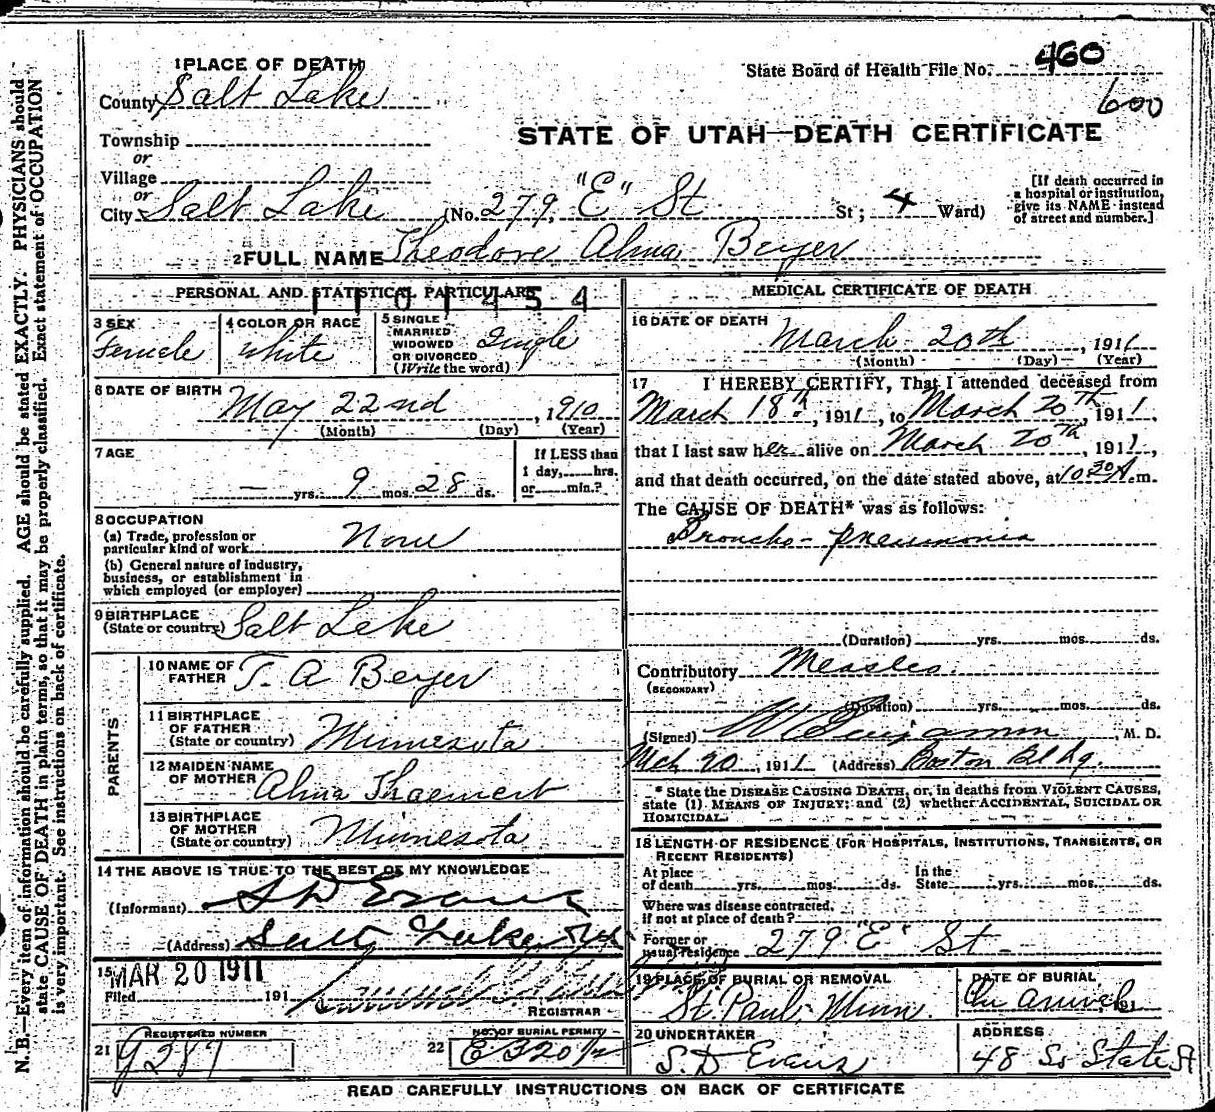 1 PLACE OF DEATH
State Board of Health File No. 460
600
County Salt Lake
STATE OF UTAH—DEATH CERTIFICATE
Township
or
Village
or
City Salt Lake (No. 279 "E" St St; 4 Ward)
[If death occurred in a hospital or institution, give its NAME instead of street and number.]
2 FULL NAME Theodore Alma Beyer
PERSONAL AND STATISTICAL PARTICULARS
1101454
3 SEX
Female
4 COLOR OR RACE
White
5 SINGLE
MARRIED
WIDOWED
OR DIVORCED
(Write the word)
Single
6 DATE OF BIRTH
May 22nd, 1910
(Month) (Day) (Year)
7 AGE
— yrs. 9 mos. 28 ds.
If LESS than
1 day, hrs.
or min.?
8 OCCUPATION
(a) Trade, profession or
particular kind of work None
(b) General nature of industry,
business, or establishment in
which employed (or employer)
9 BIRTHPLACE
(State or country) Salt Lake
PARENTS
10 NAME OF
FATHER T. A Beyer
11 BIRTHPLACE
OF FATHER
(State or country) Minnesota
12 MAIDEN NAME
OF MOTHER Alma Thaemert
13 BIRTHPLACE
OF MOTHER
(State or country) Minnesota
14 THE ABOVE IS TRUE TO THE BEST OF MY KNOWLEDGE
(Informant) S D Evans
(Address) Salt Lake
15 MAR 20 1911
Filed 191
REGISTRAR
21 REGISTERED NUMBER
9287
22 NO. OF BURIAL PERMIT
E3201/2
MEDICAL CERTIFICATE OF DEATH
16 DATE OF DEATH
March 20th, 1911
(Month) (Day) (Year)
17 I HEREBY CERTIFY, That I attended deceased from
March 18th, 1911, to March 20th, 1911,
that I last saw her alive on March 20th, 1911,
and that death occurred, on the date stated above, at 10 30 A.m.
The CAUSE OF DEATH* was as follows:
Broncho-pneumonia
(Duration) yrs. mos. ds.
Contributory Measles
(SECONDARY)
(Duration) yrs. mos. ds.
(Signed) W Benjamin, M. D.
Mch 20, 1911 (Address) Boston Bldg.
* State the DISEASE CAUSING DEATH, or, in deaths from VIOLENT CAUSES,
state (1) MEANS OF INJURY; and (2) whether ACCIDENTAL, SUICIDAL OR
HOMICIDAL.
18 LENGTH OF RESIDENCE (FOR HOSPITALS, INSTITUTIONS, TRANSIENTS, OR
RECENT RESIDENTS)
At place
of death yrs. mos. ds.
In the
State yrs. mos. ds.
Where was disease contracted,
if not at place of death?
Former or
usual residence 279 "E" St
19 PLACE OF BURIAL OR REMOVAL
St. Paul, Minn.
DATE OF BURIAL
On arrival, 191
20 UNDERTAKER
S. D Evans
ADDRESS
48 So State St
READ CAREFULLY INSTRUCTIONS ON BACK OF CERTIFICATE
N. B.—Every item of information should be carefully supplied. AGE should be stated EXACTLY. PHYSICIANS should
state CAUSE OF DEATH in plain terms, so that it may be properly classified. Exact statement of OCCUPATION
is very important. See instructions on back of certificate.